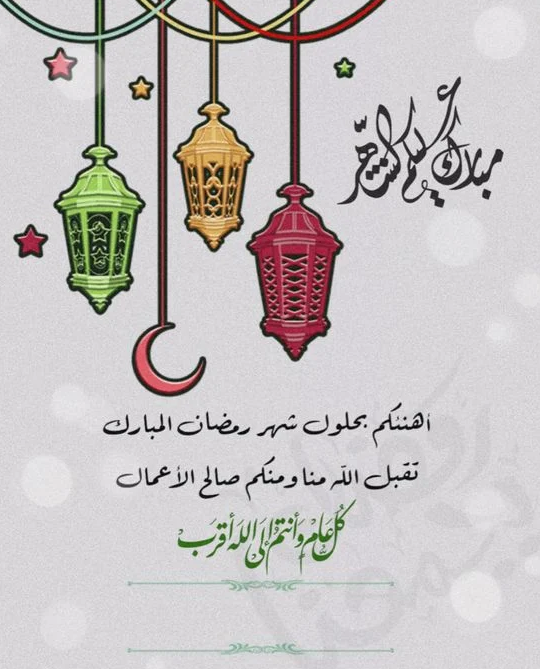 مبارك عليكم الشهر
أهنئكم بحلول شهر رمضان المبارك
تقبل الله منا ومنكم صالح الأعمال
كُل عَام وَأنتم إلىَ الله أقرَب